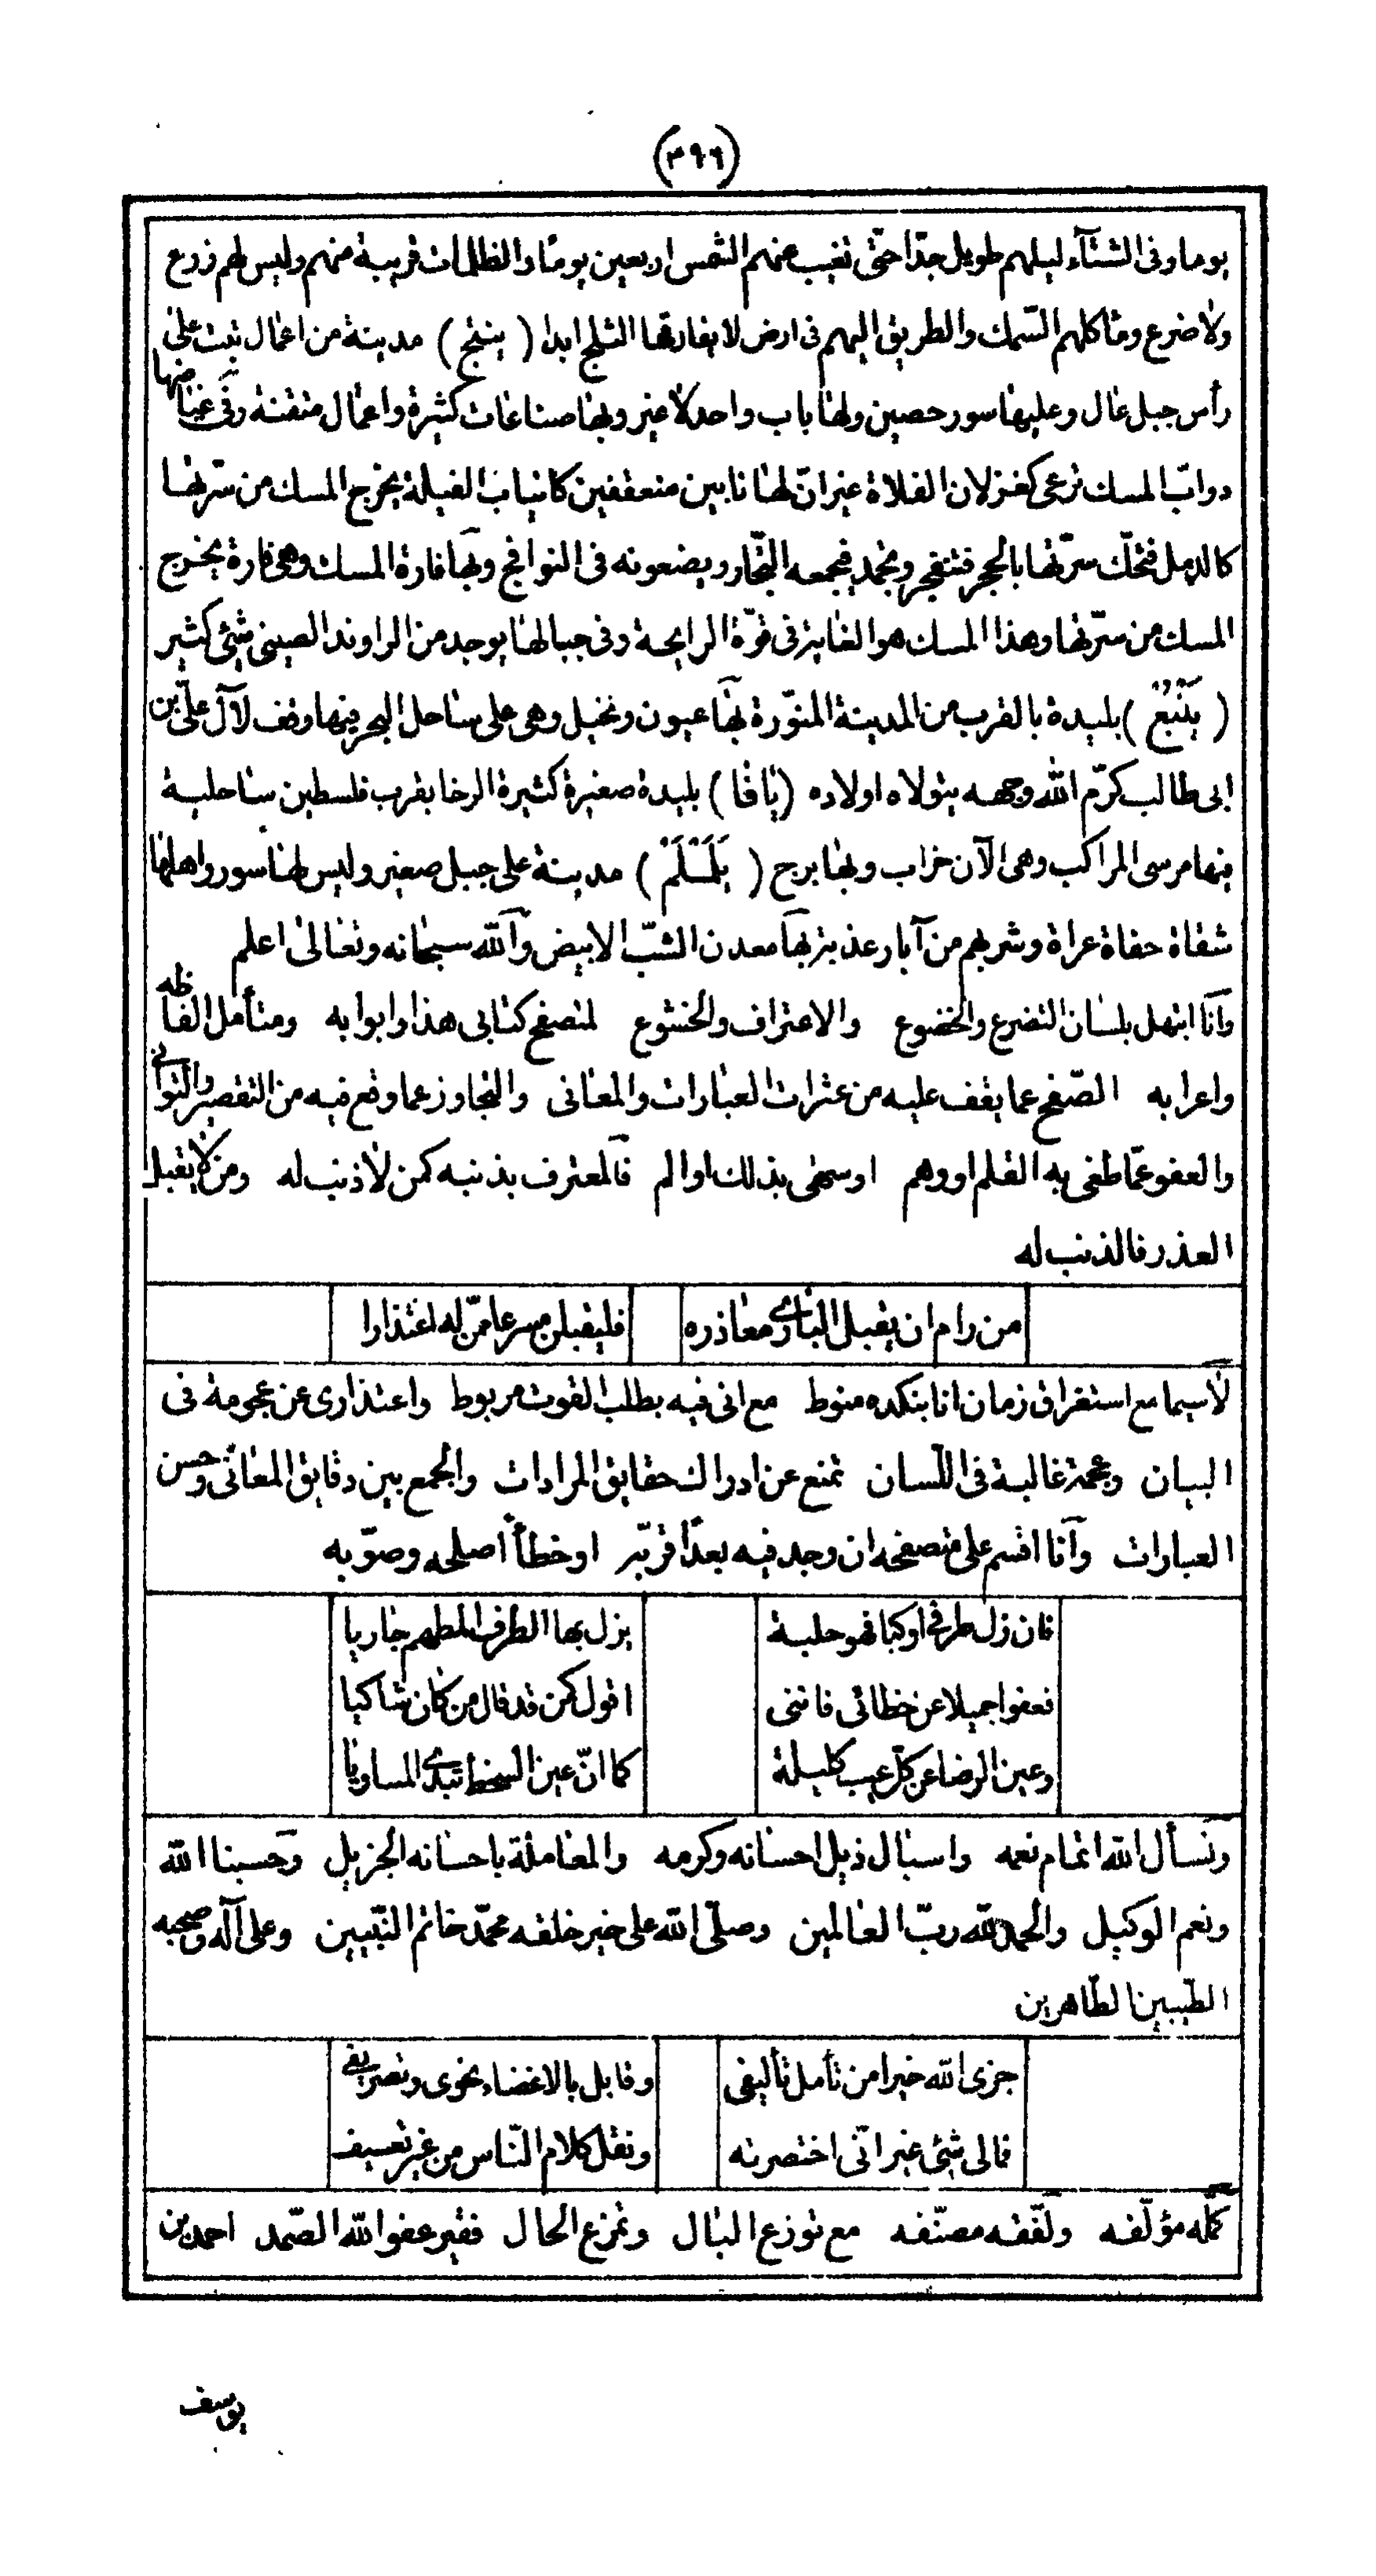 (٣٩٦)
يوما وفى الشتآء ليلهم طويل جدّا حتّى تغيب عنهم الشمس اربعين يومًا والظلمات قريبة منهم وليس لهم زرع
ولا ضرع ومأكلهم السّمك والطريق اليهم فى ارض لا يفارقها الثلج ابدا ( ينبج ) مدينة من اعمال تبت على
رأس جبل عال وعليها سور حصين ولها باب واحد لا غير وبها صناعات كثيرة واعمال متقنة وفى غياضها
دوابّ المسك ترعى كغزلان الفلاة غير انّ لها نابين منعقفين كانياب الفيلة يخرج المسك من سرّتها
كالدمل فتحكّ سرّتها بالحجر فتنفجر ويجمد فيجمعه التجّار ويضعونه فى النوافج وبها فارة المسك وهى فارة يخرج
المسك من سرّتها وهذا المسك هو الغاية فى قوّة الرايحة وفى جبالها يوجد من الراوند الصينى شئ كثير
( يَنْبُعْ ) بليدة بالقرب من المدينة المنوّرة بها عيون ونخيل وهى على ساحل البحر فيها وقف لآل علىّ بن
ابى طالب كرّم الله وجهه يتولاه اولاده (يافا) بليدة صغيرة كثيرة الرخا بقرب فلسطين ساحلية
فيها مرسى المراكب وهى الآن خراب وبها برج ( يَلَمْلَمْ ) مدينة على جبل صغير وليس لها سور واهلها
شقاة حفاة عراة وشربهم من آبار عذبة بها معدن الشبّ الابيض والله سبحانه وتعالى اعلم
وانا ابتهل بلسان التضرع والخضوع والاعتراف والخشوع لمتصفح كتابى هذا وابوابه ومتأمل الفاظه
واعرابه الصّفح عما يقف عليه من عثرات العبارات والمعانى والتجاوز عما وقع فيه من التقصير والتوانى
والعفو عمّا طغى به القلم او وهم او سهى بذلك او الم فالمعترف بذنبه كمن لا ذنب له ومن لا يقبل
العذر فالذنب له
من رام ان يقبل البارى معاذره فليقبلن مسرعا ممّن له اعتذارا
لاسيما مع استغراق زمان انا بنكده منوط مع انى فيه بطلب القوت مربوط واعتذارى عن عجومة فى
البيان وعجمة غالبة فى اللّسان تمنع عن ادراك حقايق المرادات والجمع بين دقايق المعانى وحسن
العبارات وانا اقسم على متصفحه ان وجد فيه بعدًا قرّبه او خطأً اصلحه وصوّبه
فان زل طرفى او كبا فهو حلبة يزل بها الطرف المطهم جاريا
فعفوا جميلا عن خطائى فاننى اقول كمن قد قال من كان شاكيا
وعين الرضا عن كلّ عيب كليلة كما انّ عين السخط تبدى المساويا
ونسأل الله اتمام نعمه واسبال ذيل احسانه وكرمه والمعاملة باحسانه الجزيل وحسبنا الله
ونعم الوكيل والحمد لله ربّ العالمين وصلّى الله على خير خلقه محمّد خاتم النّبيين وعلى آله وصحبه
الطيبين الطّاهرين
جزى الله خيرا من تأمل تأليفى وقابل بالاغضاء نحوى وتصريفى
فما لى شئ غير انّى اختصرته ونقل كلام النّاس من غير تعسيف
كمّله مؤلّفه ولفّقه مصنّفه مع توزع البال وتمزع الحال فقير عفو الله الصّمد احمد بن
يوسف